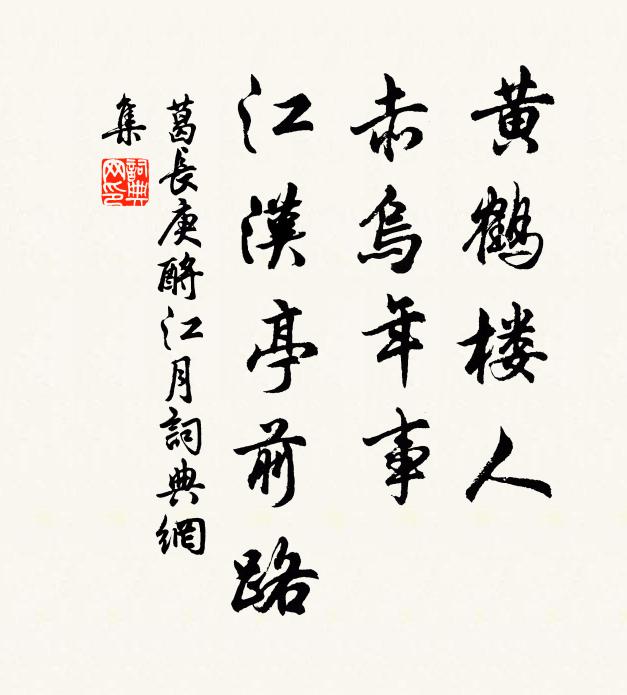 黄鹤楼人
赤烏年事
江漢亭前路
葛長庚酹江月詞典網
集
詞典
网印